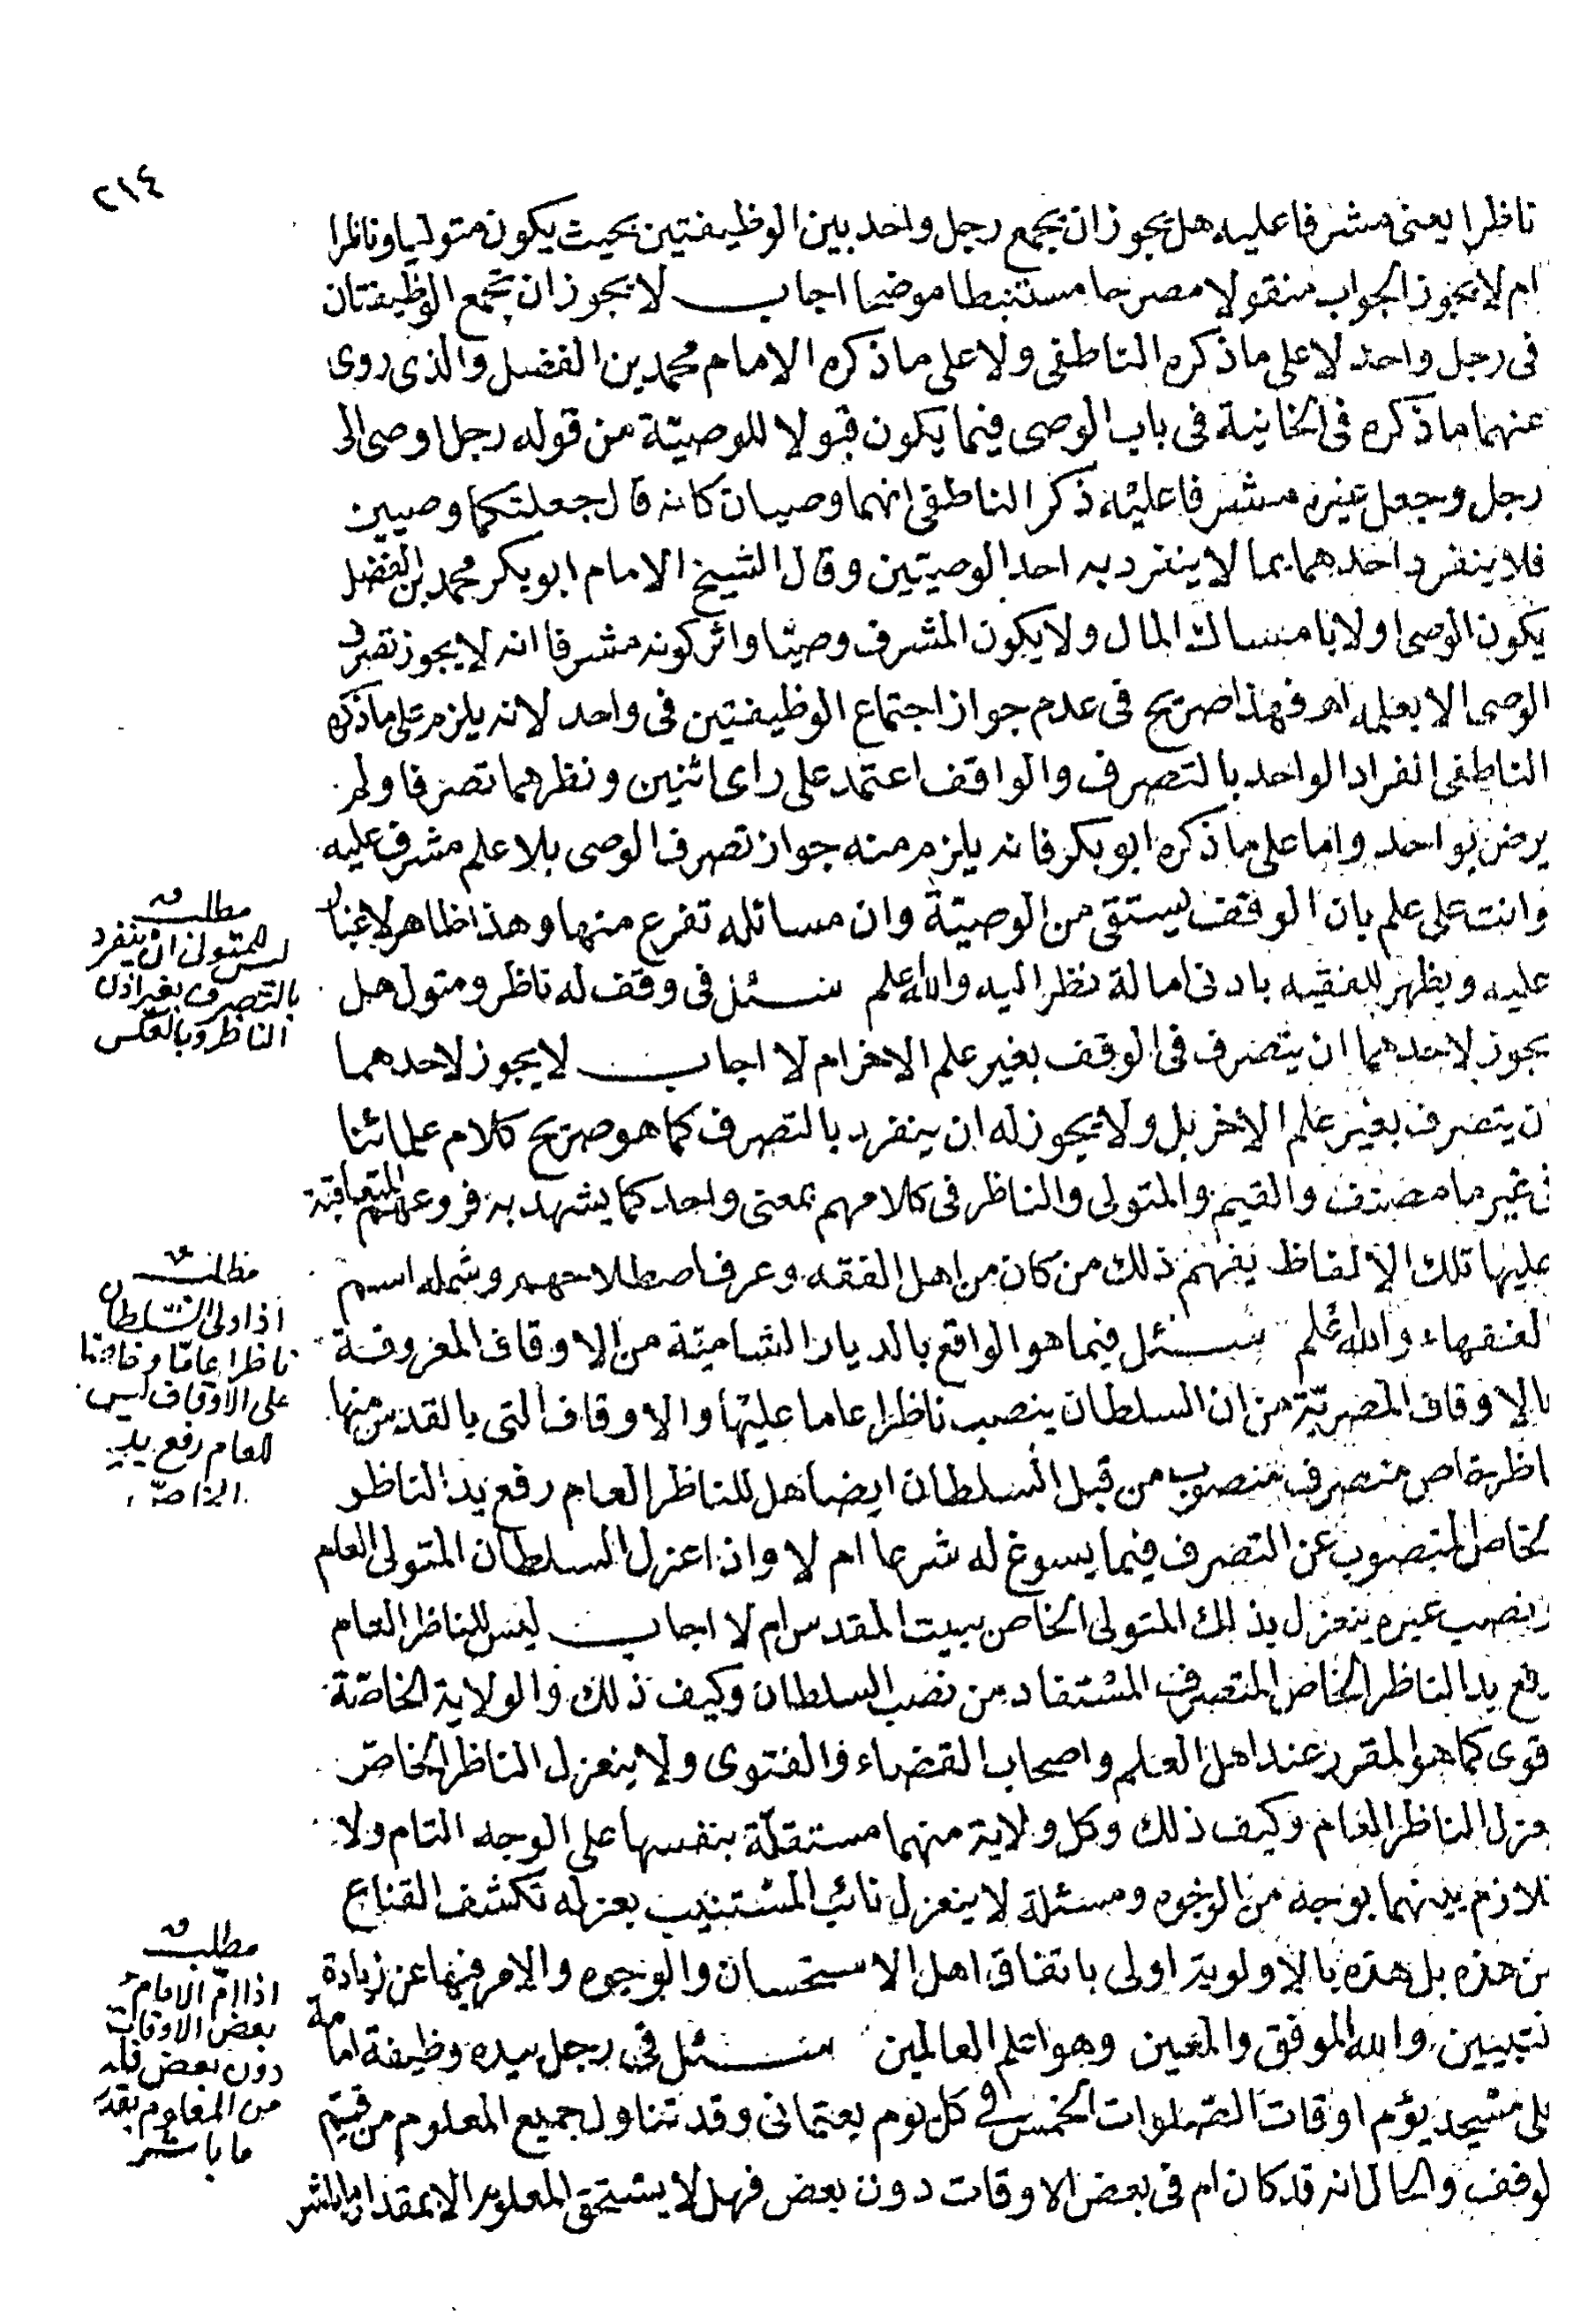 ٢١٤
ناظرا يعنى مشرفا عليه هل يجوز ان يجمع رجل واحد بين الوظيفتين بحيث يكون متوليا وناظرا
ام لا يجوز الجواب منقولا مصرحا مستنبطا موضحا اجاب لا يجوز ان تجمع الوظيفتان
فى رجل واحد لا على ما ذكره الناطقى ولا على ما ذكره الامام محمد بن الفضل والذى روى
عنهما ما ذكره فى الخانية فى باب الوصى فيما يكون قبولا للوصيّة من قوله رجل اوصى الى
رجل وجعل غيره مشرفا عليه ذكر الناطقى انهما وصيان كانه قال جعلتكما وصيين
فلا ينفرد احدهما بما لا ينفرد به احد الوصيين وقال الشيخ الامام ابو بكر محمد بن الفضل
يكون الوصى اولا بامساك المال ولا يكون المشرف وصيّا واثر كونه مشرفا انه لا يجوز تصرف
الوصى الا بعلمه اهـ فهذا صريح فى عدم جواز اجتماع الوظيفتين فى واحد لانه يلزم على ما ذكره
الناطقى انفراد الواحد بالتصرف والواقف اعتمد على راى اثنين ونظرهما تصرفا ولم
يرض بواحد واما على ما ذكره ابو بكر فانه يلزم منه جواز تصرف الوصى بلا علم مشرف عليه
وانت على علم بان الوقف يستقى من الوصيّة وان مسائله تفرع منها وهذا ظاهر لا غبار
عليه ويظهر للفقيه بادنى امالة نظر اليه والله اعلم سئل فى وقف له ناظر ومتول هل
يجوز لاحدهما ان يتصرف فى الوقف بغير علم الاخر ام لا اجاب لا يجوز لاحدهما
ان يتصرف بغير علم الاخر بل ولا يجوز له ان ينفرد بالتصرف كما هو صريح كلام علمائنا
فى غير ما مصنف والقيم والمتولى والناظر فى كلامهم بمعنى واحد كما يشهد به فروعهم المتعاقبة
عليها تلك الالفاظ يفهم ذلك من كان من اهل الفقه وعرف اصطلاحهم وشمله اسم
الفقهاء والله اعلم سئل فيما هو الواقع بالديار الشاميّة من الاوقاف المعروفة
بالاوقاف المصريّة من ان السلطان ينصب ناظرا عاما عليها والاوقاف التى بالقدس منها
ناظر خاص متصرف منصوب من قبل السلطان ايضا هل للناظر العام رفع يد الناظر
الخاص المنصوب عن التصرف فيما يسوغ له شرعا ام لا واذا عزل السلطان المتولى العام
ونصب غيره ينعزل بذلك المتولى الخاص ببيت المقدس ام لا اجاب ليس للناظر العام
رفع يد الناظر الخاص المتصرف المستفاد من نصب السلطان وكيف ذلك والولاية الخاصّة
اقوى كما هو المقرر عند اهل العلم واصحاب القضاء والفتوى ولا ينعزل الناظر الخاصّ
بعزل الناظر العام وكيف ذلك وكل ولاية منهما مستقلّة بنفسها على الوجه التام ولا
تلازم بينهما بوجه من الوجوه ومسئلة لا ينعزل نائب المستنيب بعزله تكشف القناع
عن هذه بل هذه بالاولوية اولى باتفاق اهل الاستحسان والوجوه والامر فيها عن زيادة
التبيين والله الموفق والمعين وهو اعلم العالمين سئل فى رجل بيده وظيفة امامة
على مسجد يؤم اوقات الصّلوات الخمس فى كل يوم بعثمانى وقد تناول جميع المعلوم من قيّم
الوقف والحال انه قد كان ام فى بعض الاوقات دون بعض فهل لا يستحق المعلوم الا بمقدار ما باشر
مطلب
ليس للمتولى ان ينفرد
بالتصرف بغير اذن
الناظر وبالعكس
مطلب
اذا ولى السّلطان
ناظرا عامّا وخاصّا
على الاوقاف ليس
للعام رفع يد
الخاصّ
مطلب
اذا امّ الامام
بعض الاوقات
دون بعض فله
من المعلوم بقدر
ما باشر